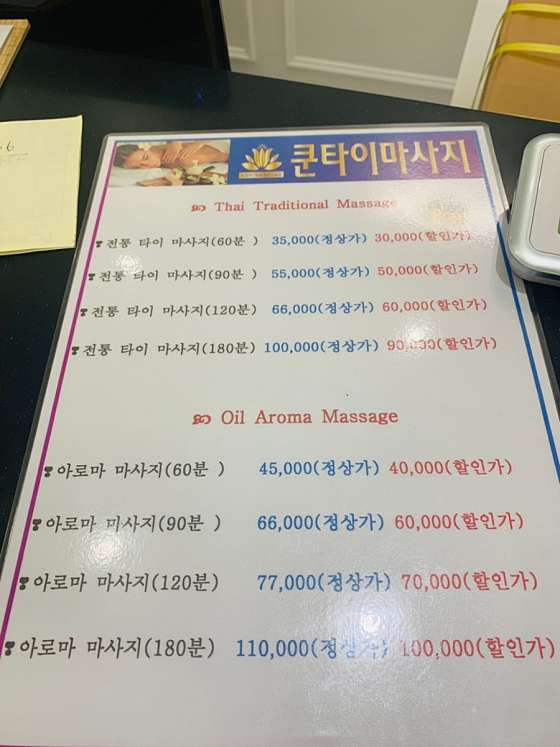 쿤타이마사지
Thai Traditional Massage
전통 타이 마사지(60분 ) 35,000(정상가) 30,000(할인가)
전통 타이 마사지(90분 ) 55,000(정상가) 50,000(할인가)
전통 타이 마사지(120분) 66,000(정상가) 60,000(할인가)
전통 타이 마사지(180분) 100,000(정상가) 90,000(할인가)
Oil Aroma Massage
아로마 마사지(60분 ) 45,000(정상가) 40,000(할인가)
아로마 마사지(90분 ) 66,000(정상가) 60,000(할인가)
아로마 마사지(120분) 77,000(정상가) 70,000(할인가)
아로마 마사지(180분) 110,000(정상가) 100,000(할인가)